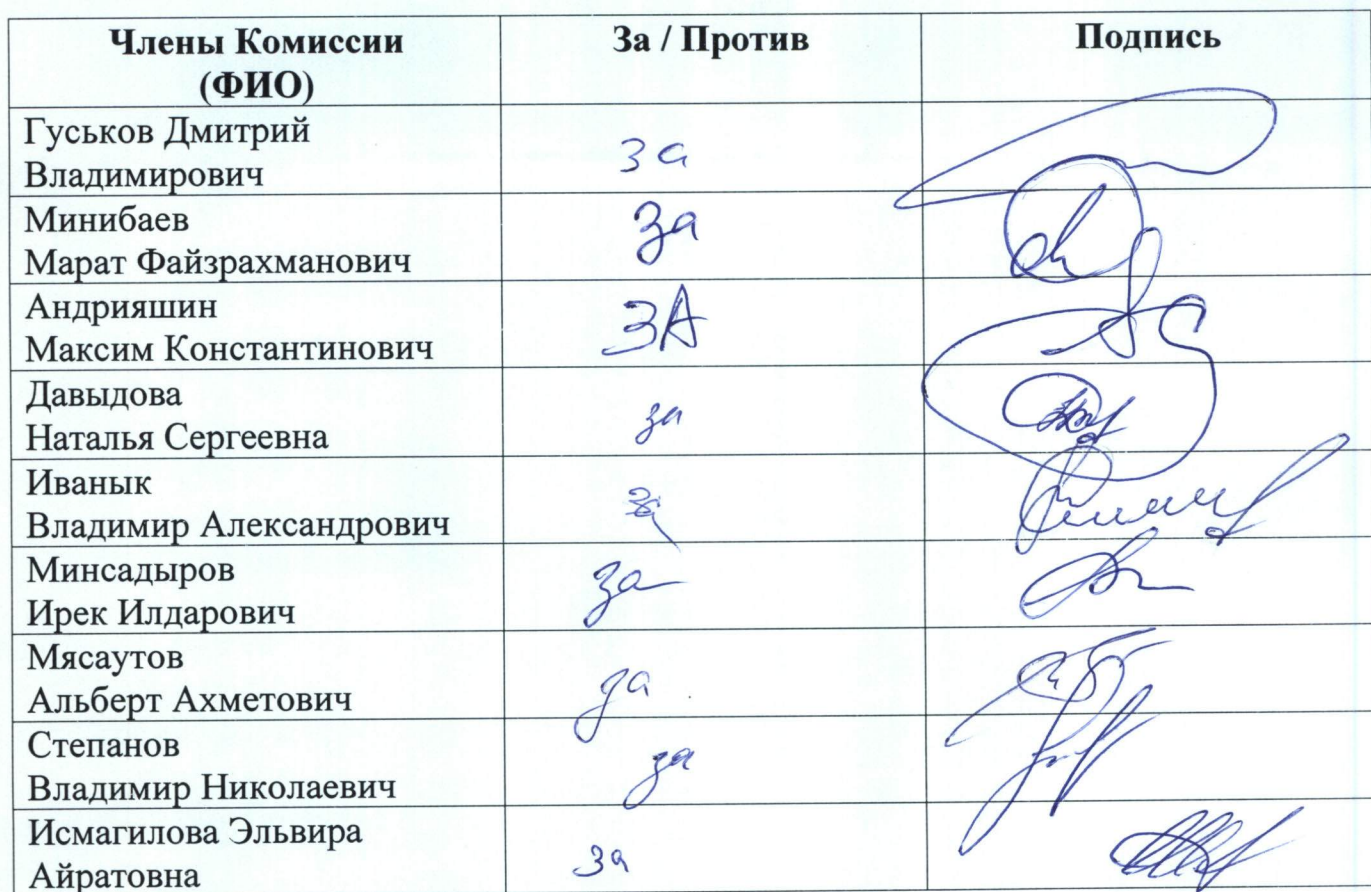 Члены Комиссии За / Против Подпись
(ФИО)
Гуськов Дмитрий
Владимирович за
Минибаев За
Марат Файзрахманович
Андрияшин ЗА
Максим Константинович
Давыдова за
Наталья Сергеевна
Иванык за
Владимир Александрович
Минсадыров за
Ирек Илдарович
Мясаутов за
Альберт Ахметович
Степанов за
Владимир Николаевич
Исмагилова Эльвира
Айратовна за